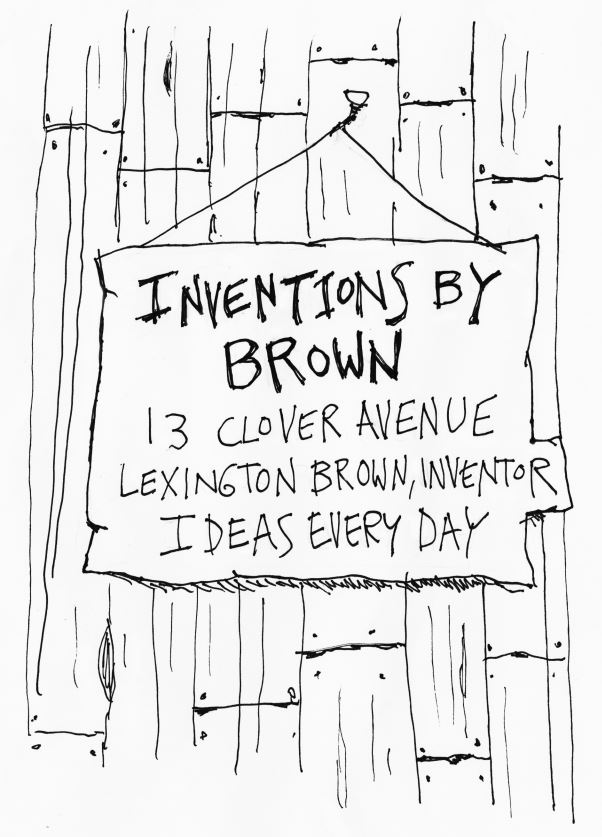 INVENTIONS BY
BROWN
13 CLOVER AVENUE
LEXINGTON BROWN, INVENTOR
IDEAS EVERY DAY